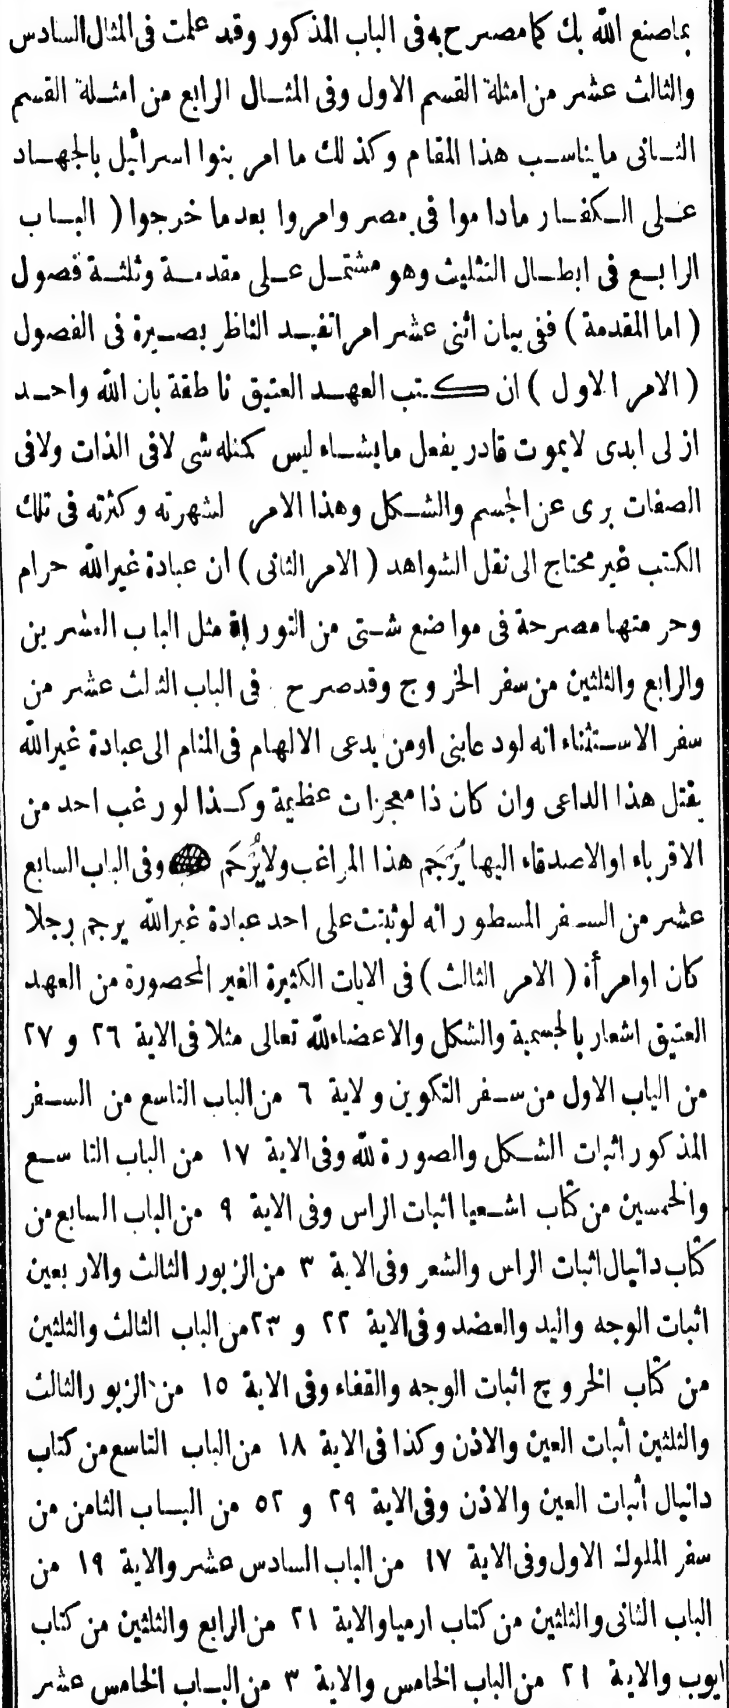 بماصنع الله بك كما مصرح به فى الباب المذكور وقد علمت فى المثال السادس
والثالث عشر من امثلة القسم الاول وفى المثال الرابع من امثلة القسم
الثانى ما يناسب هذا المقام وكذلك ما امر بنوا اسرائيل بالجهاد
على الكفار ماداموا فى مصر وامروا بعدما خرجوا ( الباب
الرابع فى ابطال التثليث وهو مشتمل على مقدمة وثلثة فصول
( اما المقدمة ) ففى بيان اثنى عشر امراتفيد الناظر بصيرة فى الفصول
( الامر الاول ) ان كتب العهد العتيق ناطقة بان الله واحد
ازلى ابدى لايموت قادر يفعل مايشاء ليس كمثله شى لافى الذات ولافى
الصفات برى عن الجسم والشكل وهذا الامر لشهرته وكثرته فى تلك
الكتب غير محتاج الى نقل الشواهد ( الامر الثانى ) ان عبادة غيرالله حرام
وحرمتها مصرحة فى مواضع شتى من التوراة مثل الباب العشرين
والرابع والثلثين من سفر الخروج وقدصرح فى الباب الثالث عشر من
سفر الاستثناء انه لودعا نبى اومن يدعى الالهام فى المنام الى عبادة غيرالله
يقتل هذا الداعى وان كان ذا معجزات عظيمة وكذا لو رغب احد من
الاقرباء اوالاصدقاء اليها يُرْجَم هذا المراغب ولايُرْحَم وفى الباب السابع
عشر من السفر المسطور انه لوثبتت على احد عبادة غيرالله يرجم رجلا
كان اوامرأة ( الامر الثالث ) فى الايات الكثيرة الغير المحصورة من العهد
العتيق اشعار بالجسمية والشكل والاعضاءلله تعالى مثلا فى الاية ٢٦ و ٢٧
من الباب الاول من سفر التكوين ولاية ٦ من الباب التاسع من السفر
المذكور اثبات الشكل والصورة لله وفى الاية ١٧ من الباب التاسع
والخمسين من كتاب اشعيا اثبات الراس وفى الاية ٩ من الباب السابع من
كتاب دانيال اثبات الراس والشعر وفى الاية ٣ من الزبور الثالث والاربعين
اثبات الوجه واليد والعضد وفى الاية ٢٢ و ٢٣ من الباب الثالث والثلثين
من كتاب الخروج اثبات الوجه والقفاء وفى الاية ١٥ من الزبور الثالث
والثلثين أثبات العين والاذن وكذا فى الاية ١٨ من الباب التاسع من كتاب
دانيال أثبات العين والاذن وفى الاية ٢٩ و ٥٢ من الباب الثامن من
سفر الملوك الاول وفى الاية ١٧ من الباب السادس عشر والاية ١٩ من
الباب الثانى والثلثين من كتاب ارميا والاية ٢١ من الرابع والثلثين من كتاب
ايوب والاية ٢١ من الباب الخامس والاية ٣ من الباب الخامس عشر